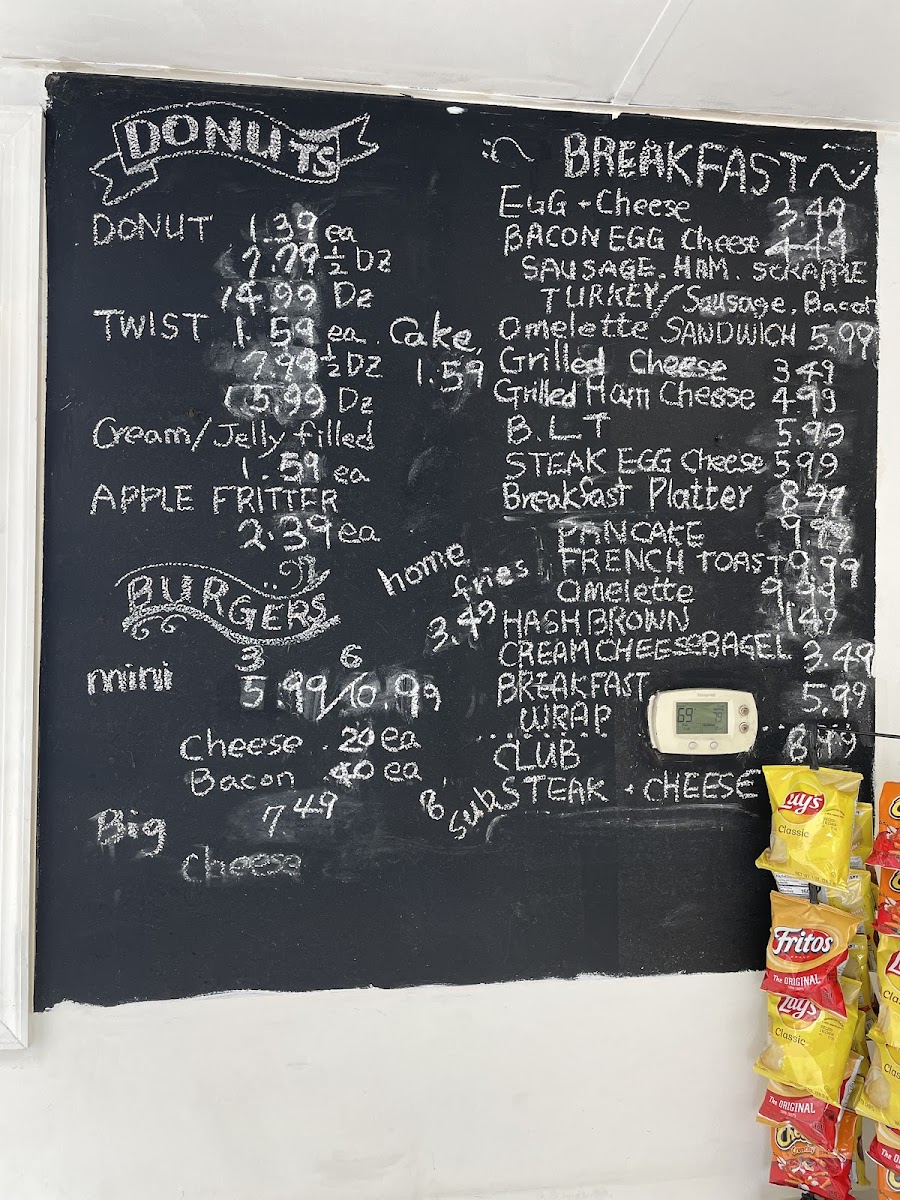 DONUTS
DONUT 1.39 ea
7.79 ½ Dz
14.99 Dz
TWIST 1.59 ea
7.99 ½ Dz
15.99 Dz
Cake
1.59
Cream/Jelly filled
1.59 ea
APPLE FRITTER
2.39 ea
BURGERS
3 6
mini 5.99/10.99
Cheese .20 ea
Bacon .40 ea
Big 7.49
Cheese
home
fries
3.49
BREAKFAST
EGG + Cheese 3.49
BACON EGG Cheese 4.49
SAUSAGE. HAM. SCRAPPLE
TURKEY/Sausage, Bacon
Omelette SANDWICH 5.99
Grilled Cheese 3.49
Grilled Ham Cheese 4.99
B.L.T 5.99
STEAK EGG Cheese 5.99
Breakfast Platter 8.99
PANCAKE 9.99
FRENCH TOAST 9.99
Omelette 9.99
HASHBROWN 1.49
CREAM CHEESE BAGEL 3.49
BREAKFAST 5.99
WRAP
CLUB 8.49
8" Subs STEAK + CHEESE
69
Lay's
Classic
Fritos
The ORIGINAL
Lay's
Classic
The ORIGINAL